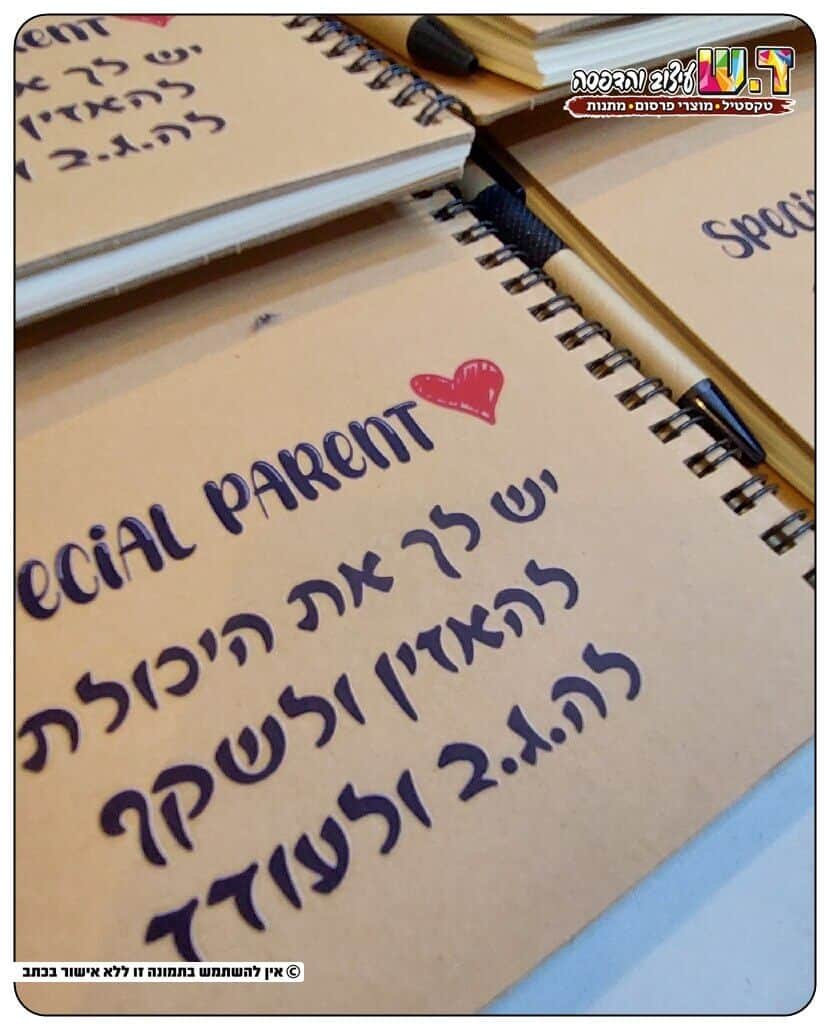 ד.ש עיצוב והדפסה
טקסטיל • מוצרי פרסום • מתנות
יש לך
להאזין
לה.ג.ב
PARENT
יש לך את היכולת
להאזין ולשקף
לה.ג.ב ולעודד
© אין להשתמש בתמונה זו ללא אישור בכתב